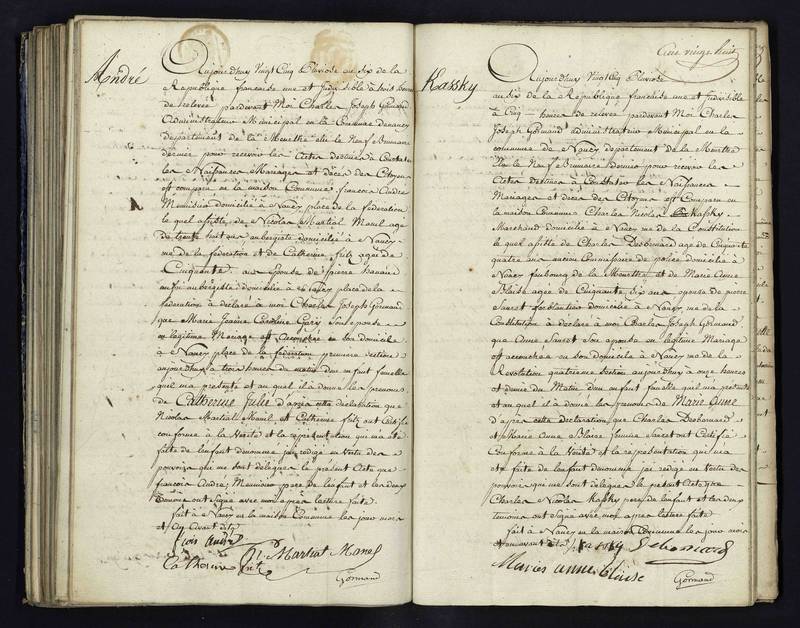 André
Aujourd'huy Vingt Cinq Pluviose an six de la
République française une et Indivisible à trois heures
de relevée pardevant Moi Charles Joseph Gormand
Administrateur Municipal en la Commune de nancy
departement de la Meurthe élu le Neuf Brumaire
dernier pour recevoir les Actes destinés à Constater
les Naissances Mariages et décès des Citoyens
est comparu en la maison Commune françois André
domicilié à Nancy place de la federation
le quel assisté de Nicolas Martial age
de trente huit ans aubergiste domicilié à Nancy
rue de la federation et de Catherine agée de
Cinquante ans épouse de pierre
aussi aubergiste domicilié à Nancy place de la
federation à déclaré à moi Charles Joseph Gormand
que Marie Jeanne Caroline Son épouse
en légitime Mariage est accouchée en son domicile
à Nancy place de la federation premiere section
aujourdhuy à trois heures du matin d'un enfant femelle
quil ma présenté et au quel il a donné les prenoms
de Catherine Julie d'après cette déclaration que
Nicolas Martial et Catherine ont Certifié
conforme à la Vérité et la représentation qui m'a été
faite de l'enfant dénommé jai rédigé en Vertu des
pouvoirs qui me sont délégués le présent Acte que
françois André père de l'enfant et les deux
témoins ont Signé avec moi après lecture faite
fait à Nancy en la maison Commune les jour mois
et an avant dits
André
Martial
Catherine
Gormand
Cent vingt huit
Kassky
Aujourdhuy Vingt Cinq Pluviose
an six de la Republique française une et Indivisible
à Cinq heures de relevée pardevant Moi Charles
Joseph Gormand administrateur Municipal en la
commune de Nancy departement de la Meurthe
élu le Neuf Brumaire Dernier pour recevoir les
Actes Destinés à Constater les Naissances
Mariages et décès des Citoyens est Comparu en
la maison Commune Charles Nicolas Kassky
Marchand domicilié à Nancy rue de la Constitution
le quel assisté de Charles Desbonnard agé de Cinquante
quatre ans ancien Commissaire de police domicilié à
Nancy faubourg de la Meurthe et de Marie Anne
Blaise agée de Cinquante Six ans épouse de pierre
Sauret ferblantier domicilié à Nancy rue de la
Constitution à déclaré à moi Charles Joseph Gormand
que Anne Sauret Son épouse en légitime Mariage
est accouchée en son domicile à Nancy rue de la
Revolution quatrieme Section aujourdhuy à onze heures
et demie du Matin d'un enfant femelle quil ma présenté
et au quel il a donné les prenoms de Marie Anne
d'après cette Declaration que Charles Desbonnard
et Marie Anne Blaise femme Sauret ont Certifié
Conforme à la Vérité et la représentation qui m'a
été faite de l'enfant dénommé jai rédigé en Vertu des
pouvoirs qui me sont délégués le présent Acte que
Charles Nicolas Kassky père de l'enfant et les deux
témoins ont Signé avec moi après lecture faite
fait à Nancy en la maison Commune les jour mois
et an avant dits Kassky Desbonnard
Marie anne blaise
Gormand